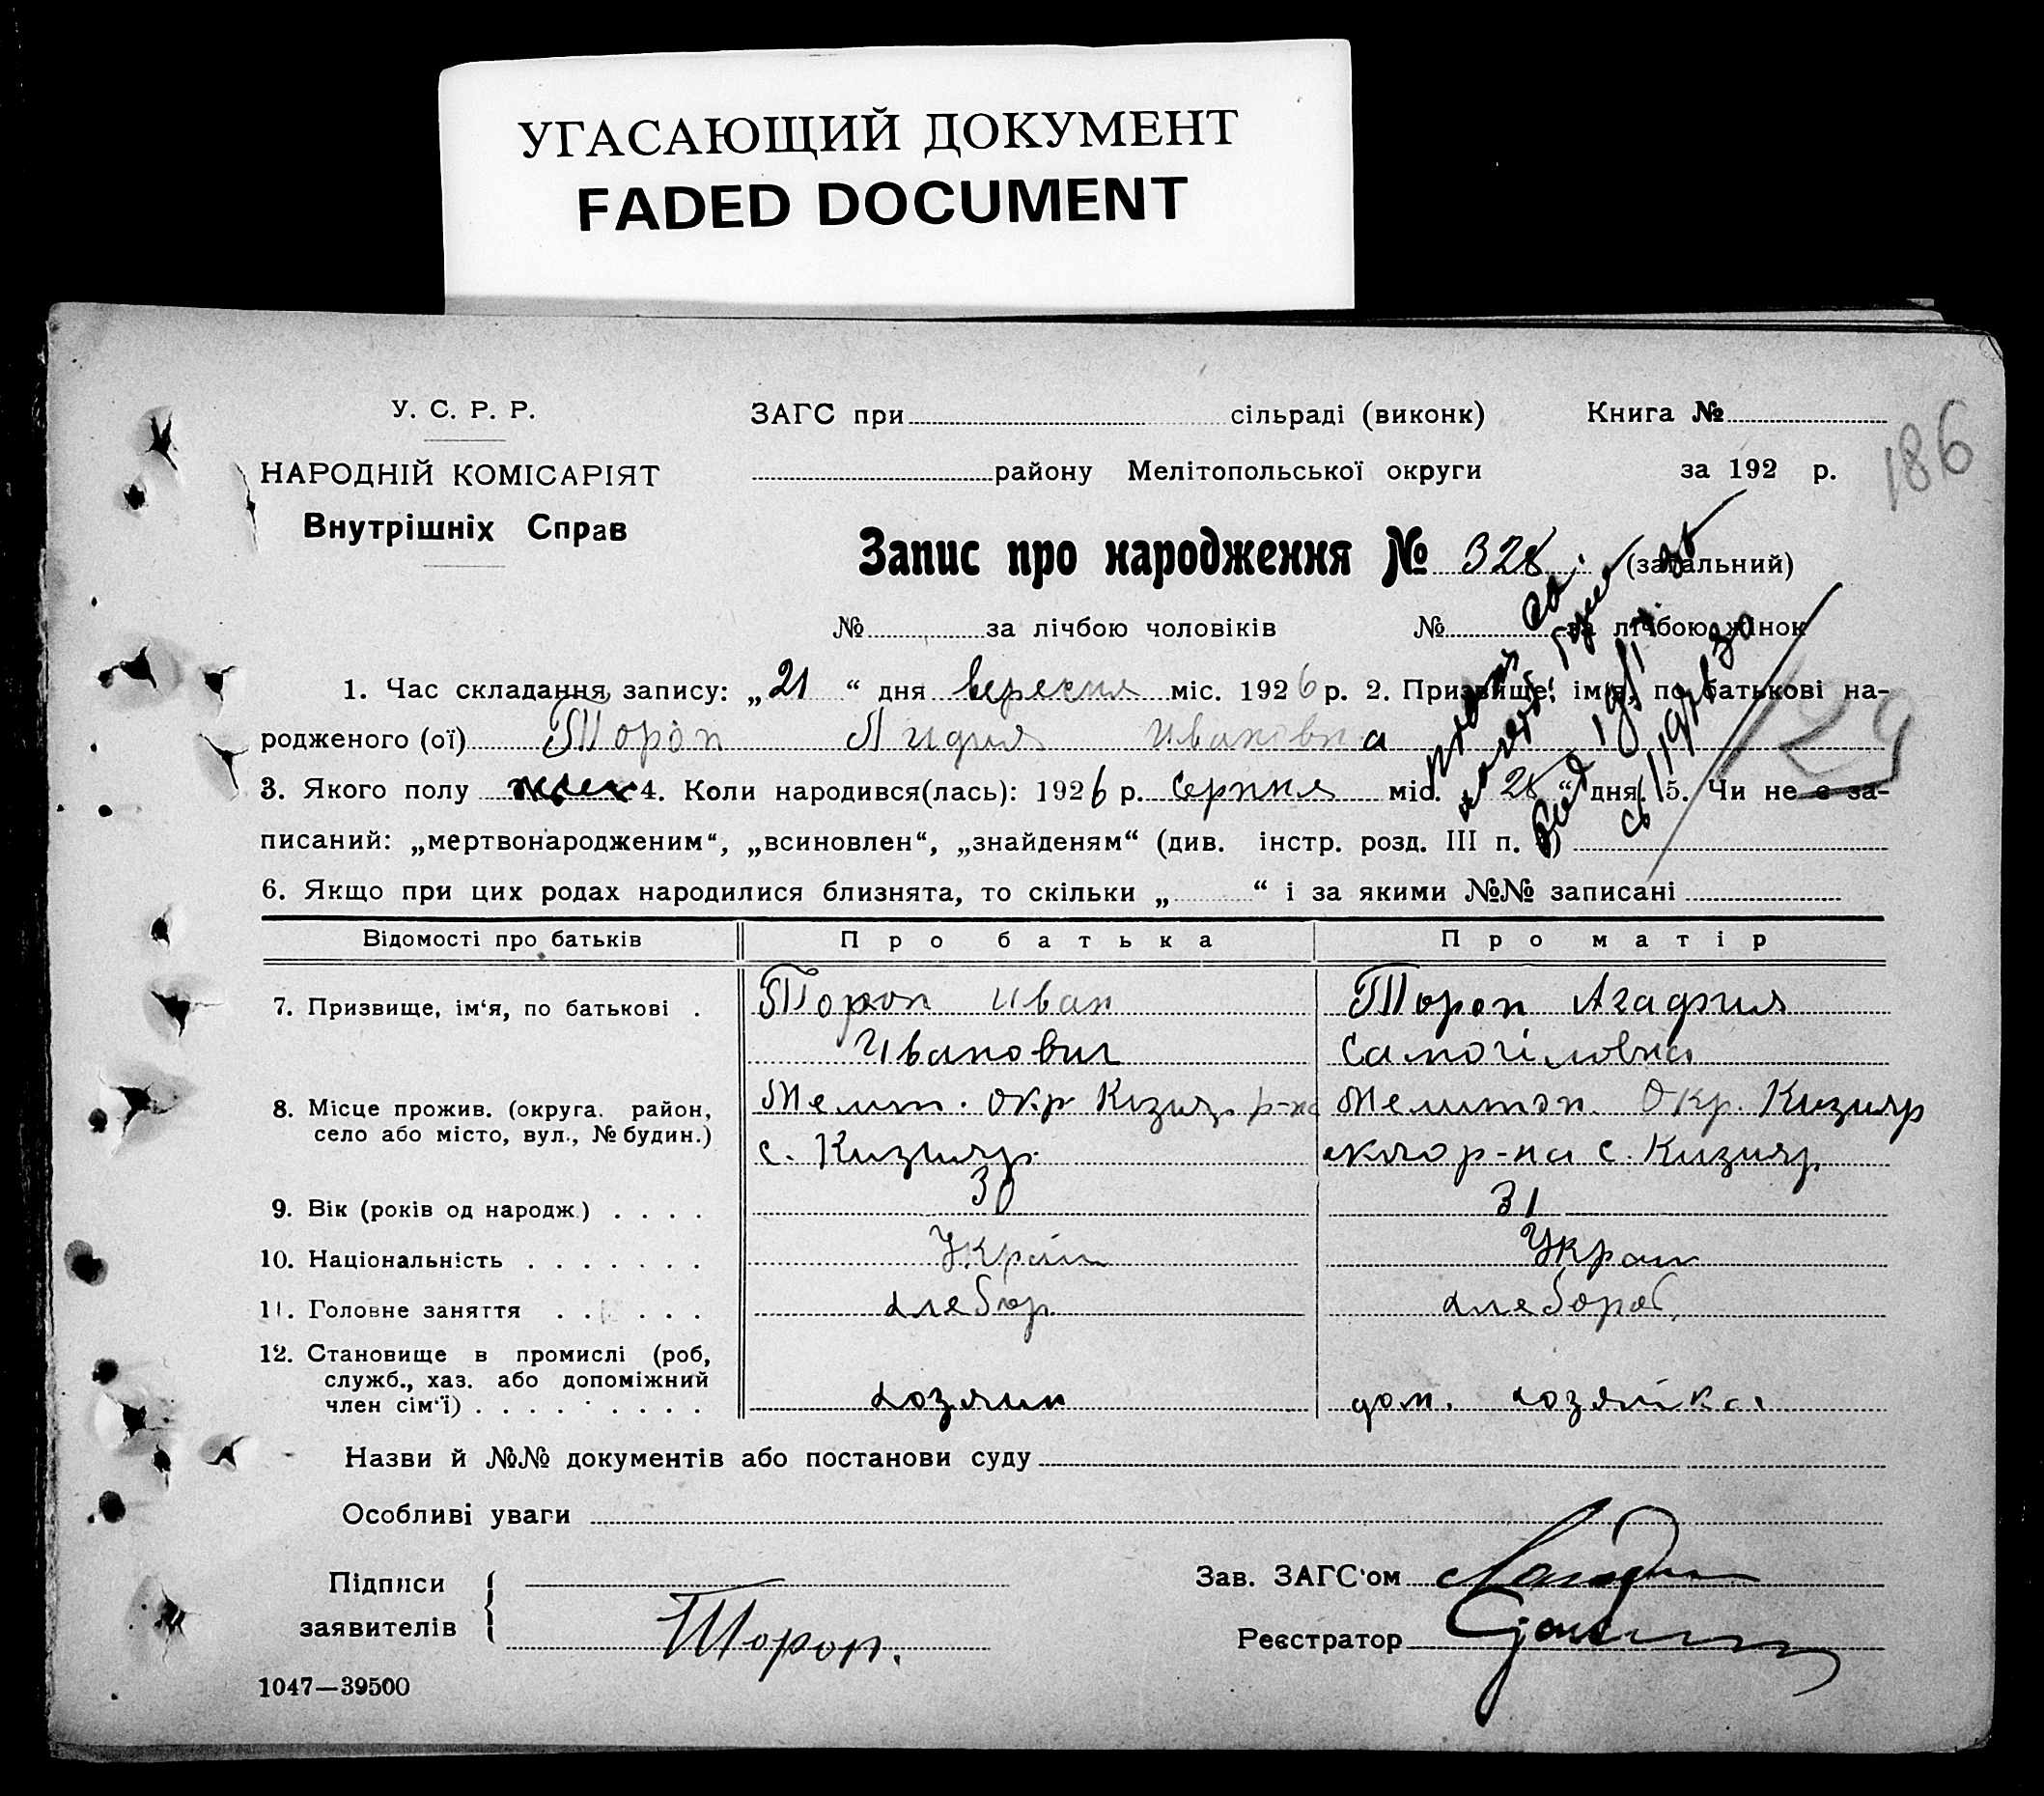 УГАСАЮЩИЙ ДОКУМЕНТ
FADED DOCUMENT
У. С. Р. Р.
НАРОДНІЙ КОМІСАРІЯТ
Внутрішніх Справ
ЗАГС при сільраді (виконк)
Книга №
186
району Мелітопольської округи
за 192 р.
Запис про народження № 328 (загальний)
№ за лічбою чоловіків № за лічбою жінок
1. Час складання запису: „21“ дня вересня міс. 1926 р. 2. Призвище, імя, по батькові на-
родженого (ої) Тороп Лидия Ивановна
129
3. Якого полу жен 4. Коли народився(лась): 1926 р. серпня міс. 28 “ дня. 5. Чи не є за-
писаний: „мертвонародженим“, „всиновлен“, „знайденям“ (див. інстр. розд. III п.
6. Якщо при цих родах народилися близнята, то скільки „ “ і за якими №№ записані
Відомості про батьків Про батька Про матір
7. Призвище, ім‘я, по батькові . Тороп Иван Тороп Агафия
Іванович Самоіловна
8. Місце прожив. (округа. район, Мелит. окр Кизияр. р-на Мелитоп. Окр. Кизияр
село або місто, вул., № будин.) с. Кизияр. ского р-на с. Кизияр
9. Вік (років од народж.) . . . . 30 31
10. Національність . . . . . . . Украін Украін
11. Головне заняття . . . . . . хлебор. хлебороб.
12. Становище в промислі (роб,
служб., хаз. або допоміжний
член сім‘ї) . . . . . . . . . хозяин дом. хозяйка
Назви й №№ документів або постанови суду
Особливі уваги
Підписи
заявителів Тороп.
Зав. ЗАГС‘ом
Реєстратор
1047—39500